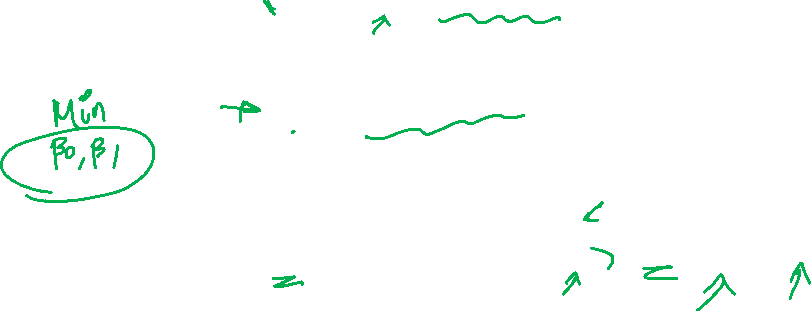 Min
β0, β1
=
=